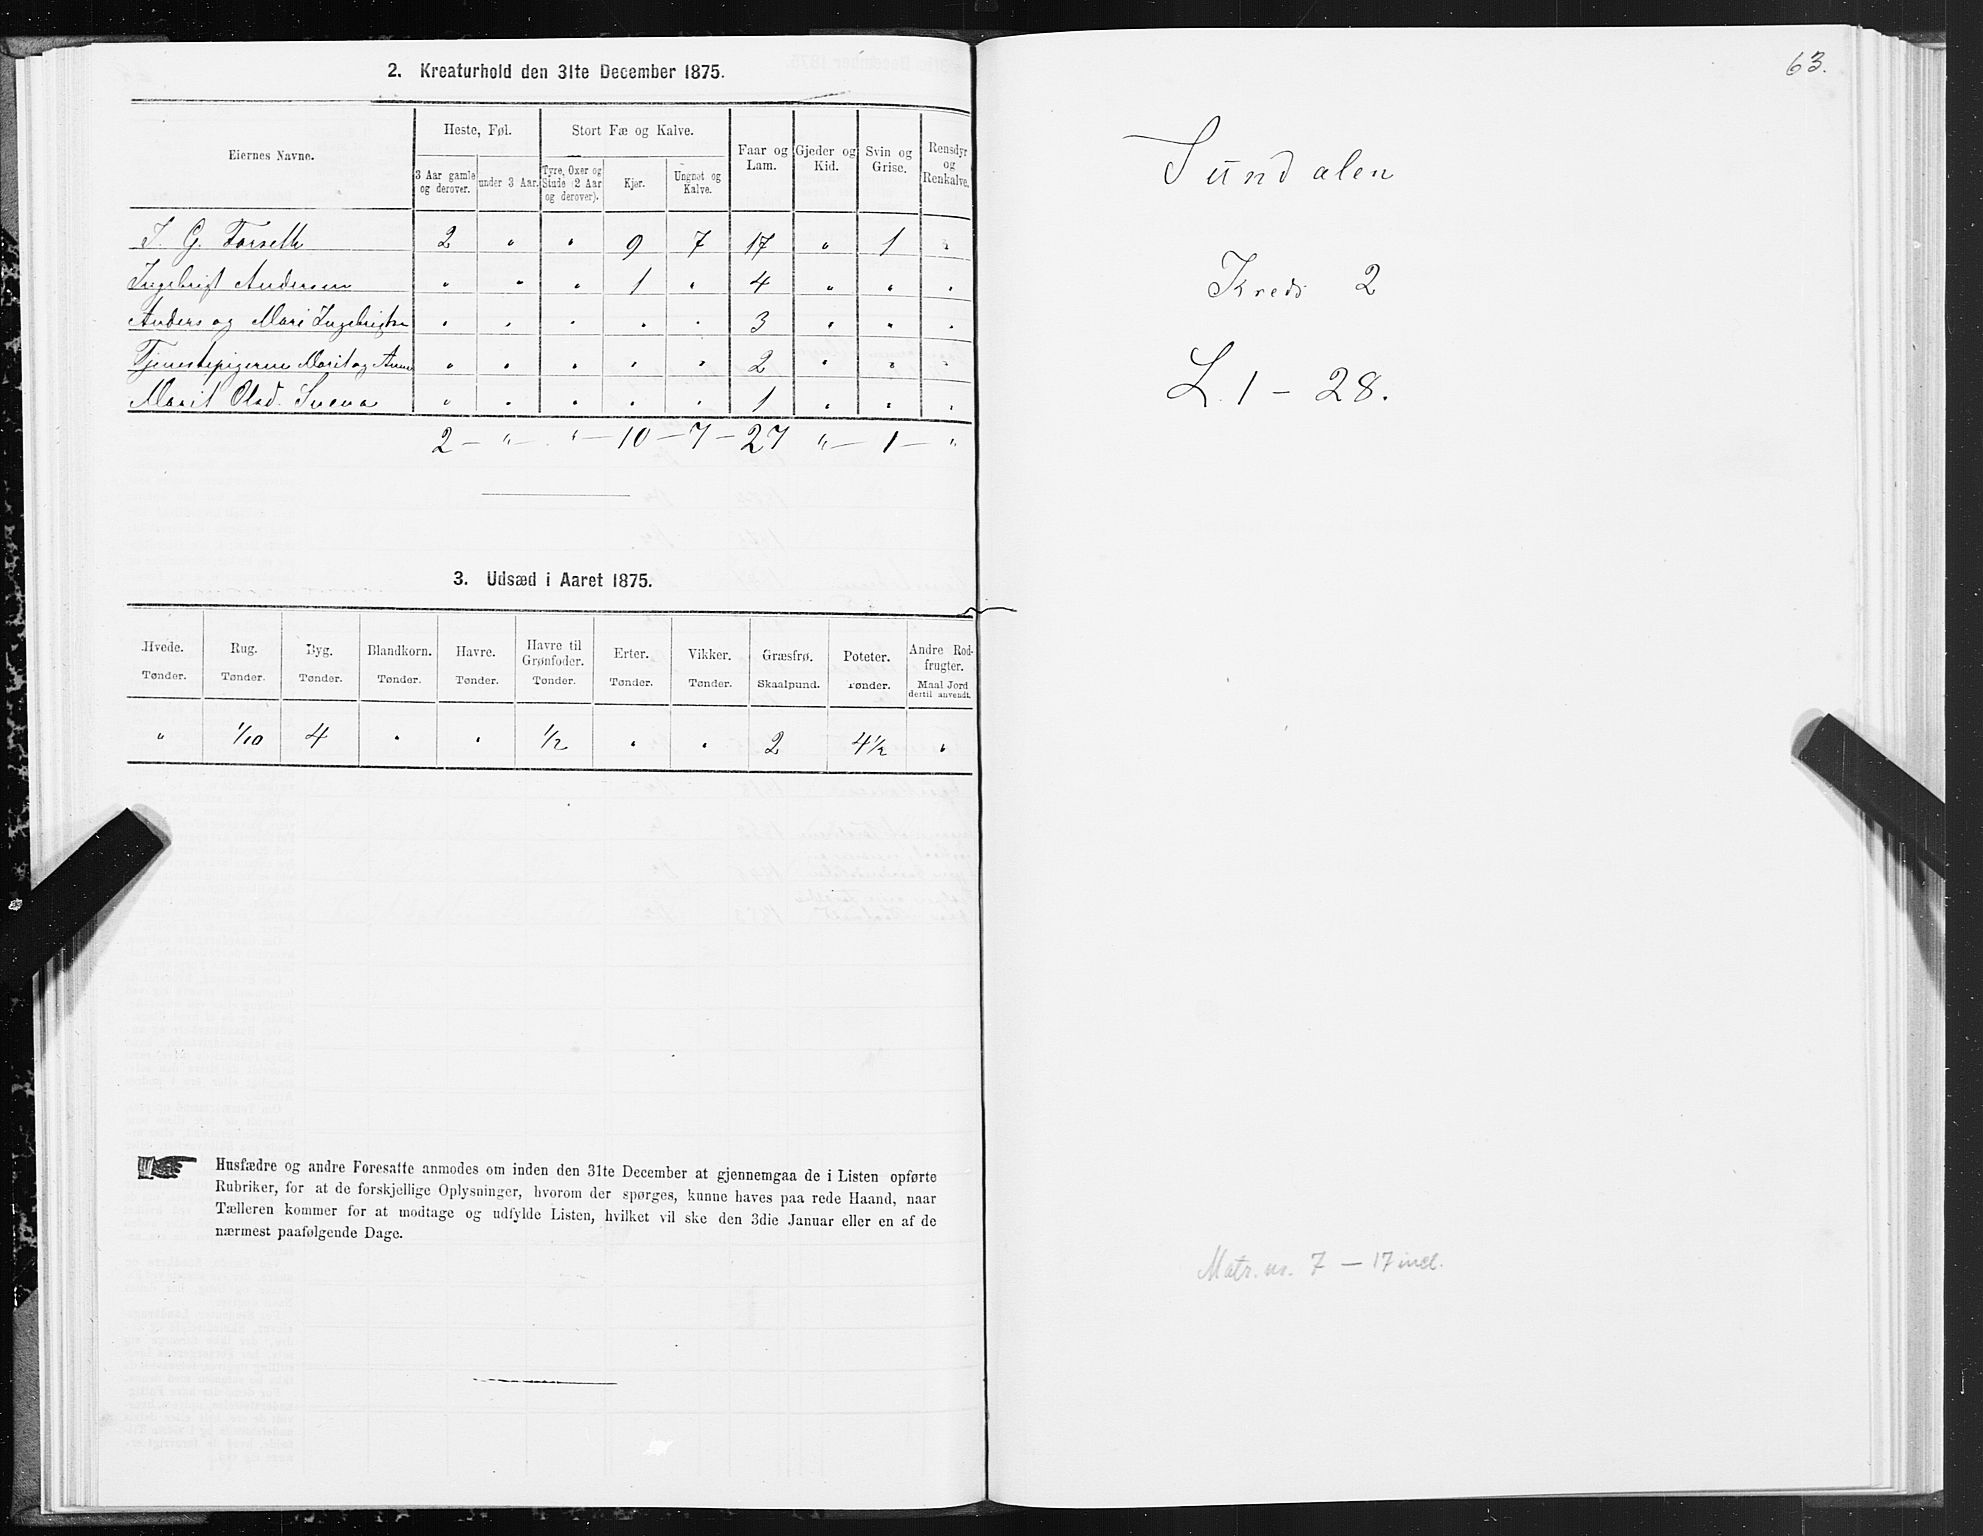 2. Kreaturhold den 31te December 1875.
Eiernes Navne.
Heste, Føl.
Stort Fæ og Kalve.
Faar og Lam.
Gjeder og Kid.
Svin og Grise.
Rensdyr og Renkalve.
3 Aar gamle og derover.
under 3 Aar.
Tyre, Oxer og Stude (2 Aar og derover).
Kjør.
Ungnøt og Kalve.
I. G. Forseth 2 " " 9 7 17 " 1 "
Ingebrigt Andersen " " " 1 " 4 " " "
Anders og Mari Ingebrigts " " " " " 3 " " "
Tjenestepigerne Marit og Anne " " " " " 2 " " "
Marit Olsd. " " " " " 1 " " "
2 – " – " – 10 – 7 – 27 " – 1 – "
3. Udsæd i Aaret 1875.
Hvede. Rug. Byg. Blandkorn. Havre. Havre til Grønfoder. Erter. Vikker. Græsfrø. Poteter. Andre Rodfrugter.
Tønder. Tønder. Tønder. Tønder. Tønder. Tønder. Tønder. Tønder. Skaalpund. Tønder. Maal Jord dertil anvendt.
" 1/10 4 " " 1/2 " " 2 4 1/2 "
Husfædre og andre Foresatte anmodes om inden den 31te December at gjennemgaa de i Listen opførte
Rubriker, for at de forskjellige Oplysninger, hvorom der spørges, kunne haves paa rede Haand, naar
Tælleren kommer for at modtage og udfylde Listen, hvilket vil ske den 3die Januar eller en af de
nærmest paafølgende Dage.
63.
Sundalen
Kreds 2
L. 1 – 28.
Matr. nr. 7 – 17 incl.